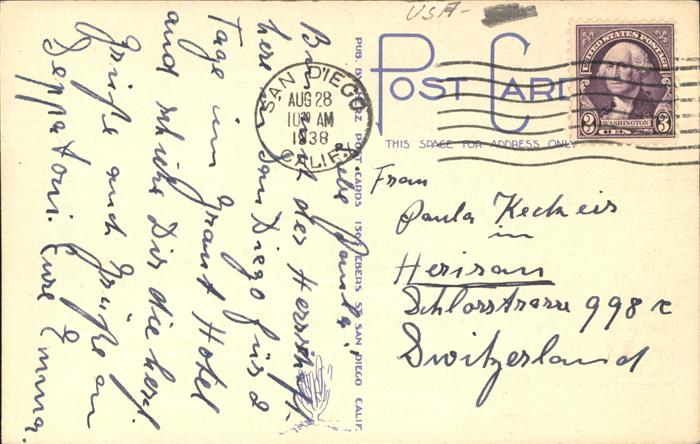 USA-
POST CARD
THIS SPACE FOR ADDRESS ONLY
SAN DIEGO
AUG 28
10 AM
1938
CALIF.
UNITED STATES POSTAGE
WASHINGTON
3 CENTS 3
PUB. BY POST CARDS EBERS ST. SAN DIEGO CALIF.
Liebe Paula!
Bin mit der Herrschaft
hier in San Diego für 2
Tage im Grant Hotel
und schicke Dir die herzl
Grüße auch Grüße an
Seppatoni. Eure Emma.
Frau
Paula Keckeis
in
Herisau
Schlossstrasse 998 c
Switzerland